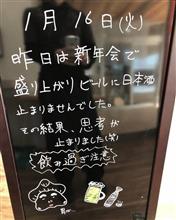 1月16日(火)
昨日は新年会で
盛り上がりビールに日本酒
止まりませんでした。
その結果、思考が
止まりました(笑)
飲み過ぎ注意